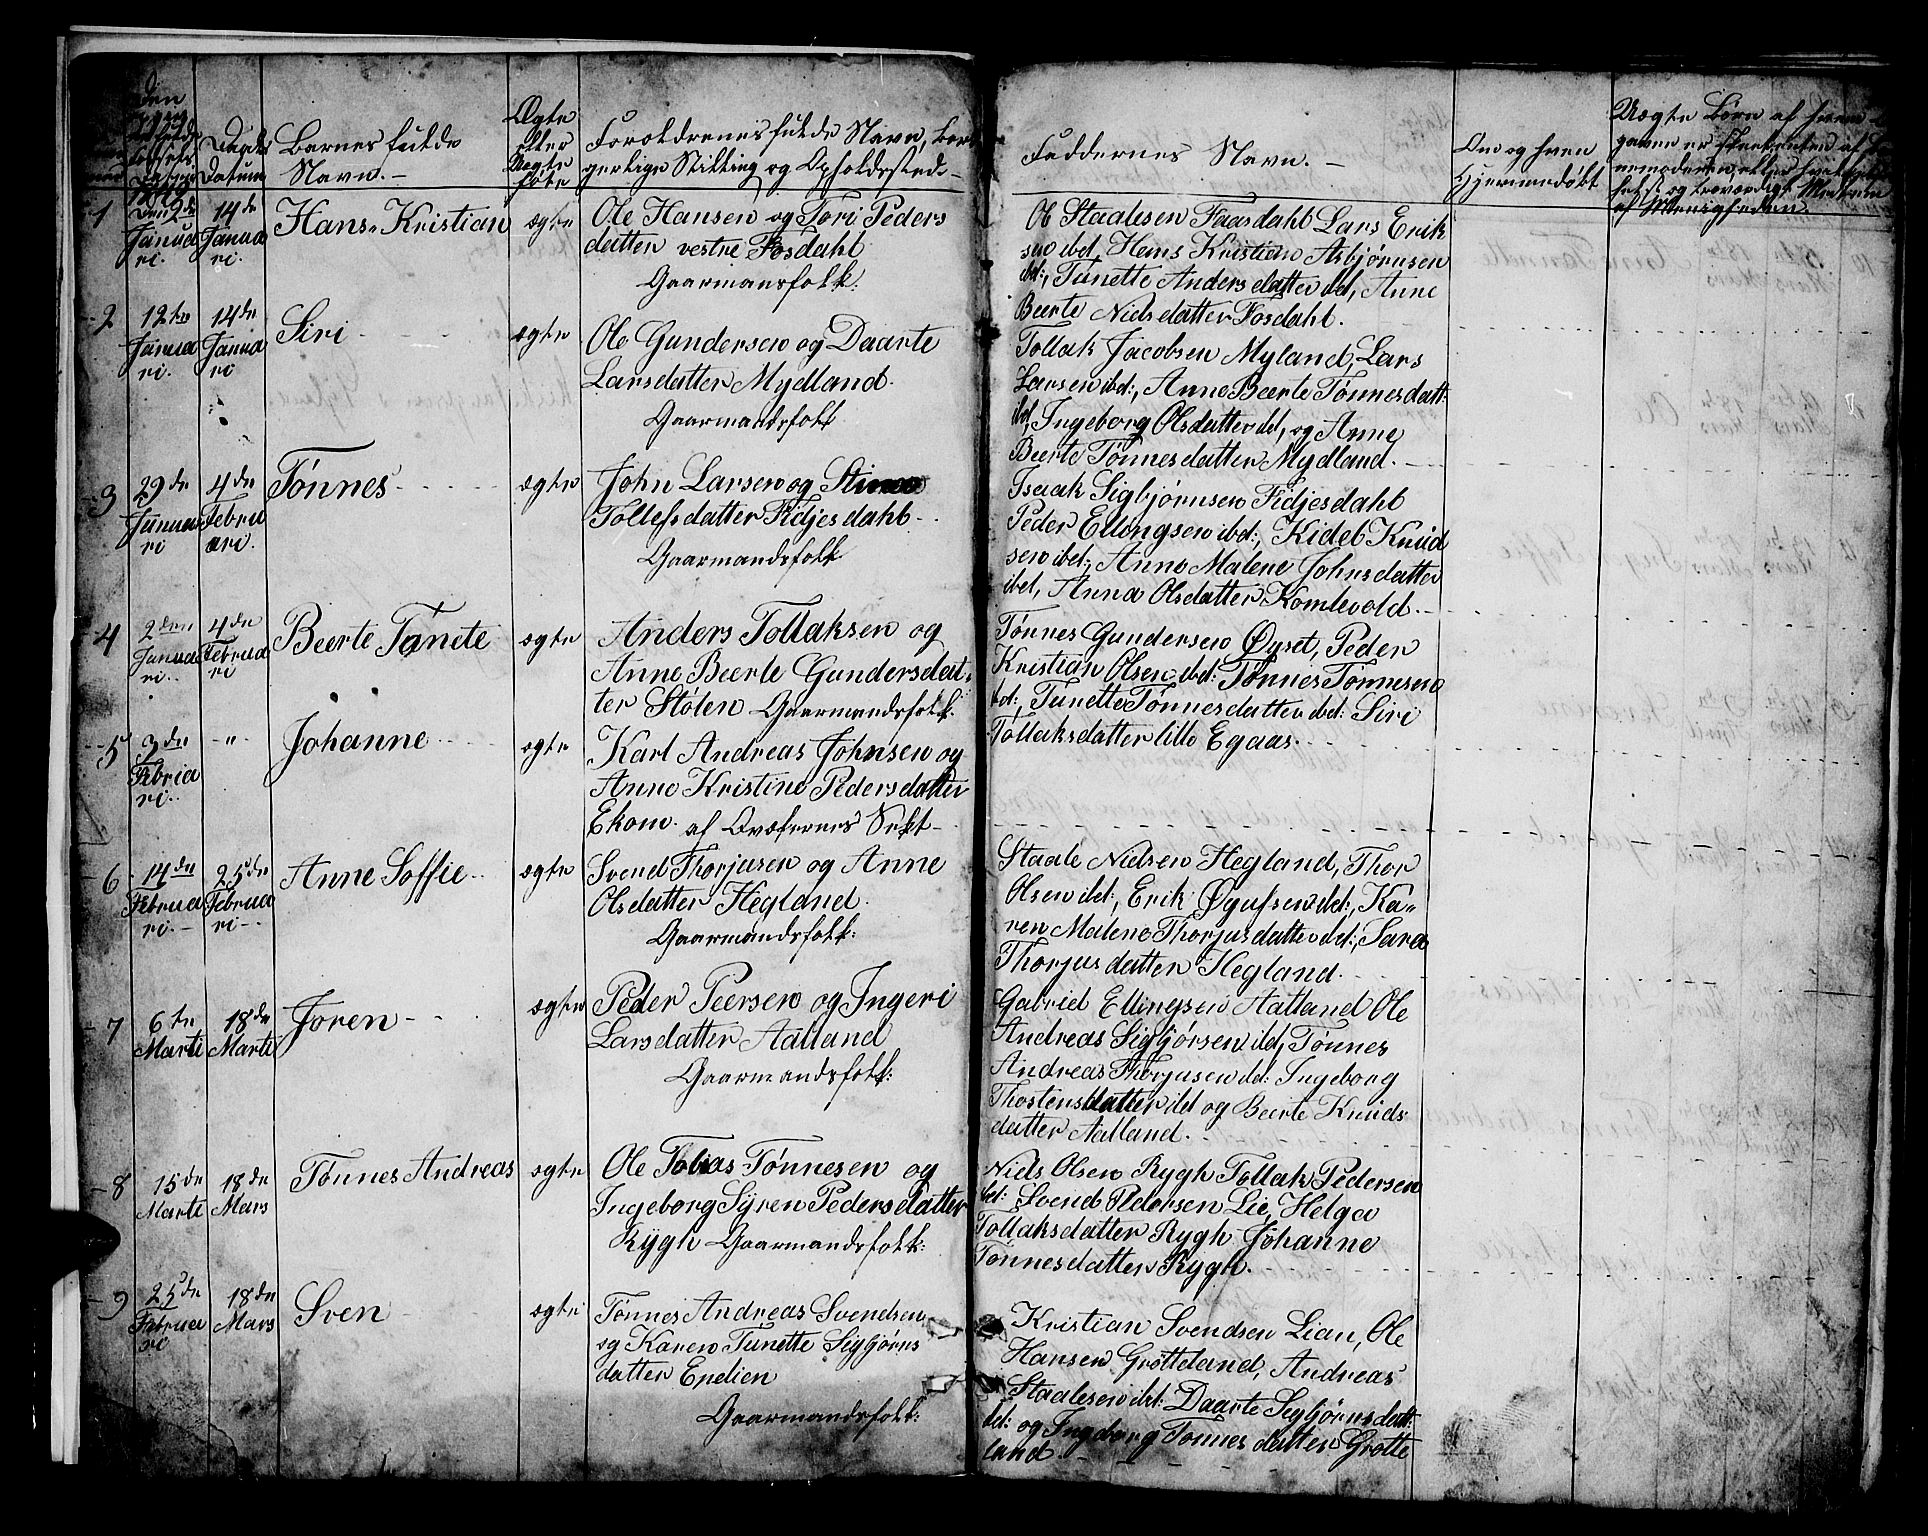 Daabs
Datum
Barnets fulde
Navn.-
Ægte
eller
Uægte
føtt
Forældrenes fulde Navn, bor-
gerlige Stilling og Opholdssted.-
Faddernes Navn.-
Om og hven
Hjemmedøbt
Uægte Børn af hvem
1
Den 2de
Januari
ri.
14de
Janua
ri.
Hans Kristian
ægte
Ole Hansen og Tori Peders
datter vestre Fosdahl
Gaarmansfolk:
Ol Staalesen Faasdahl Lars Erik
sen ibd, Hans Kristian Asbjørnsen
ibd:, Tunette Andersdatter ibd, Anne
Beerte Nielsdatter Fosdahl.
2
12te
Janua
ri.
14de
Janua
ri
Siri
ægte
Ole Gundersen og Daarte
Larsdatter Mydland.
Gaarmandsfolk
Tollak Jacobsen Myland, Lars
Larsen ibd:, Anne Beerte Tønnesdatt:
ibd, Ingeborg Olsdatter ibd, og Anne
Beerte Tønnesdatter Mydland.
3
29de
Janua
ri
4de
Febru
æri.
Tønnes
ægte
John Larsen og Stinea
Tollefsdatter Fidjesdahl.
Gaarmandsfolk
Isaak Sigbjørnsen Fidjesdahl
Peder Ellingsen ibd:, Kidel Knud
sen ibd:, Anne Malene Johnsdatter
ibd, Anna Olsdatter Komlevold.
4
2den
Janua
ri.
4de
Februa
ri
Beerte Tanete
ægte
Anders Tollaksen og
Anne Beerte Gundersdat
ter Støten Gaarmandsfolk.
Tønnes Gundersen Øyset, Peder
Kristian Olsen ibd: Tønnes Tønnesen
ibd:, Tunette Tønnesdatter ibd: Siri
Tollaksdatter lille Egaas.
5
3de
Februa
ri.
-"-
Johanne
ægte
Karl Andreas Johnsen og
Anne Kristine Pedersdatter
Ekom. af Qvækernes Sekt
6
14de
Februa
ri.
25de
Februa
ri
Anne Soffie
ægte
Svend Thorjusen og Anne
Olsdatter Hegland.
Gaarmandsfolk:
Staale Nielsen Hegland, Thor
Olsen ibd:, Erik Øyufsen ibd:, Ka=
ren Malene Thorjusdatter ibd:, Sara
Thorjusdatter Hegland.
7
6te
Marti
18de
Marti
Joren
ægte
Peder Peersen og Ingeri
Larsdatter Aatland
Gaarmandsfolk:
Gabriel Ellingsen Aatland Ole
Andreas Sigbjørsen ibd, Tønnes
Andreas Thorjusen ibd: Ingeborg
Thostensdatter ibd og Beerte Knuds
datter Aatland.
8
15de
Marti
18de
Mars
Tønnes Andreas
ægte
Ole Tobias Tønnesen og
Ingeborg Syren Pedersdatter
Rygh Gaarmandsfolk:
Niels Olsen Rygh Tollak Pedersen
ibd: Svend Pedersen Lie, Helga
Tollaksdatter Rygh Johanne
Tønnesdatter Rygh.
9
25de
Februa
ri
18de
Mars
Sven
ægte
Tønnes Andreas Svendsen
og Karen Tunette Sigbjørns
datter Enelien
Gaarmandsfolk:
Kristian Svendsen Lian, Ole
Hansen Grötteland, Andreas
Staalesen ibd: Daarte Sigbjørnsdatt:
ibd: og Ingeborg Tønnesdatter Grötte
land.